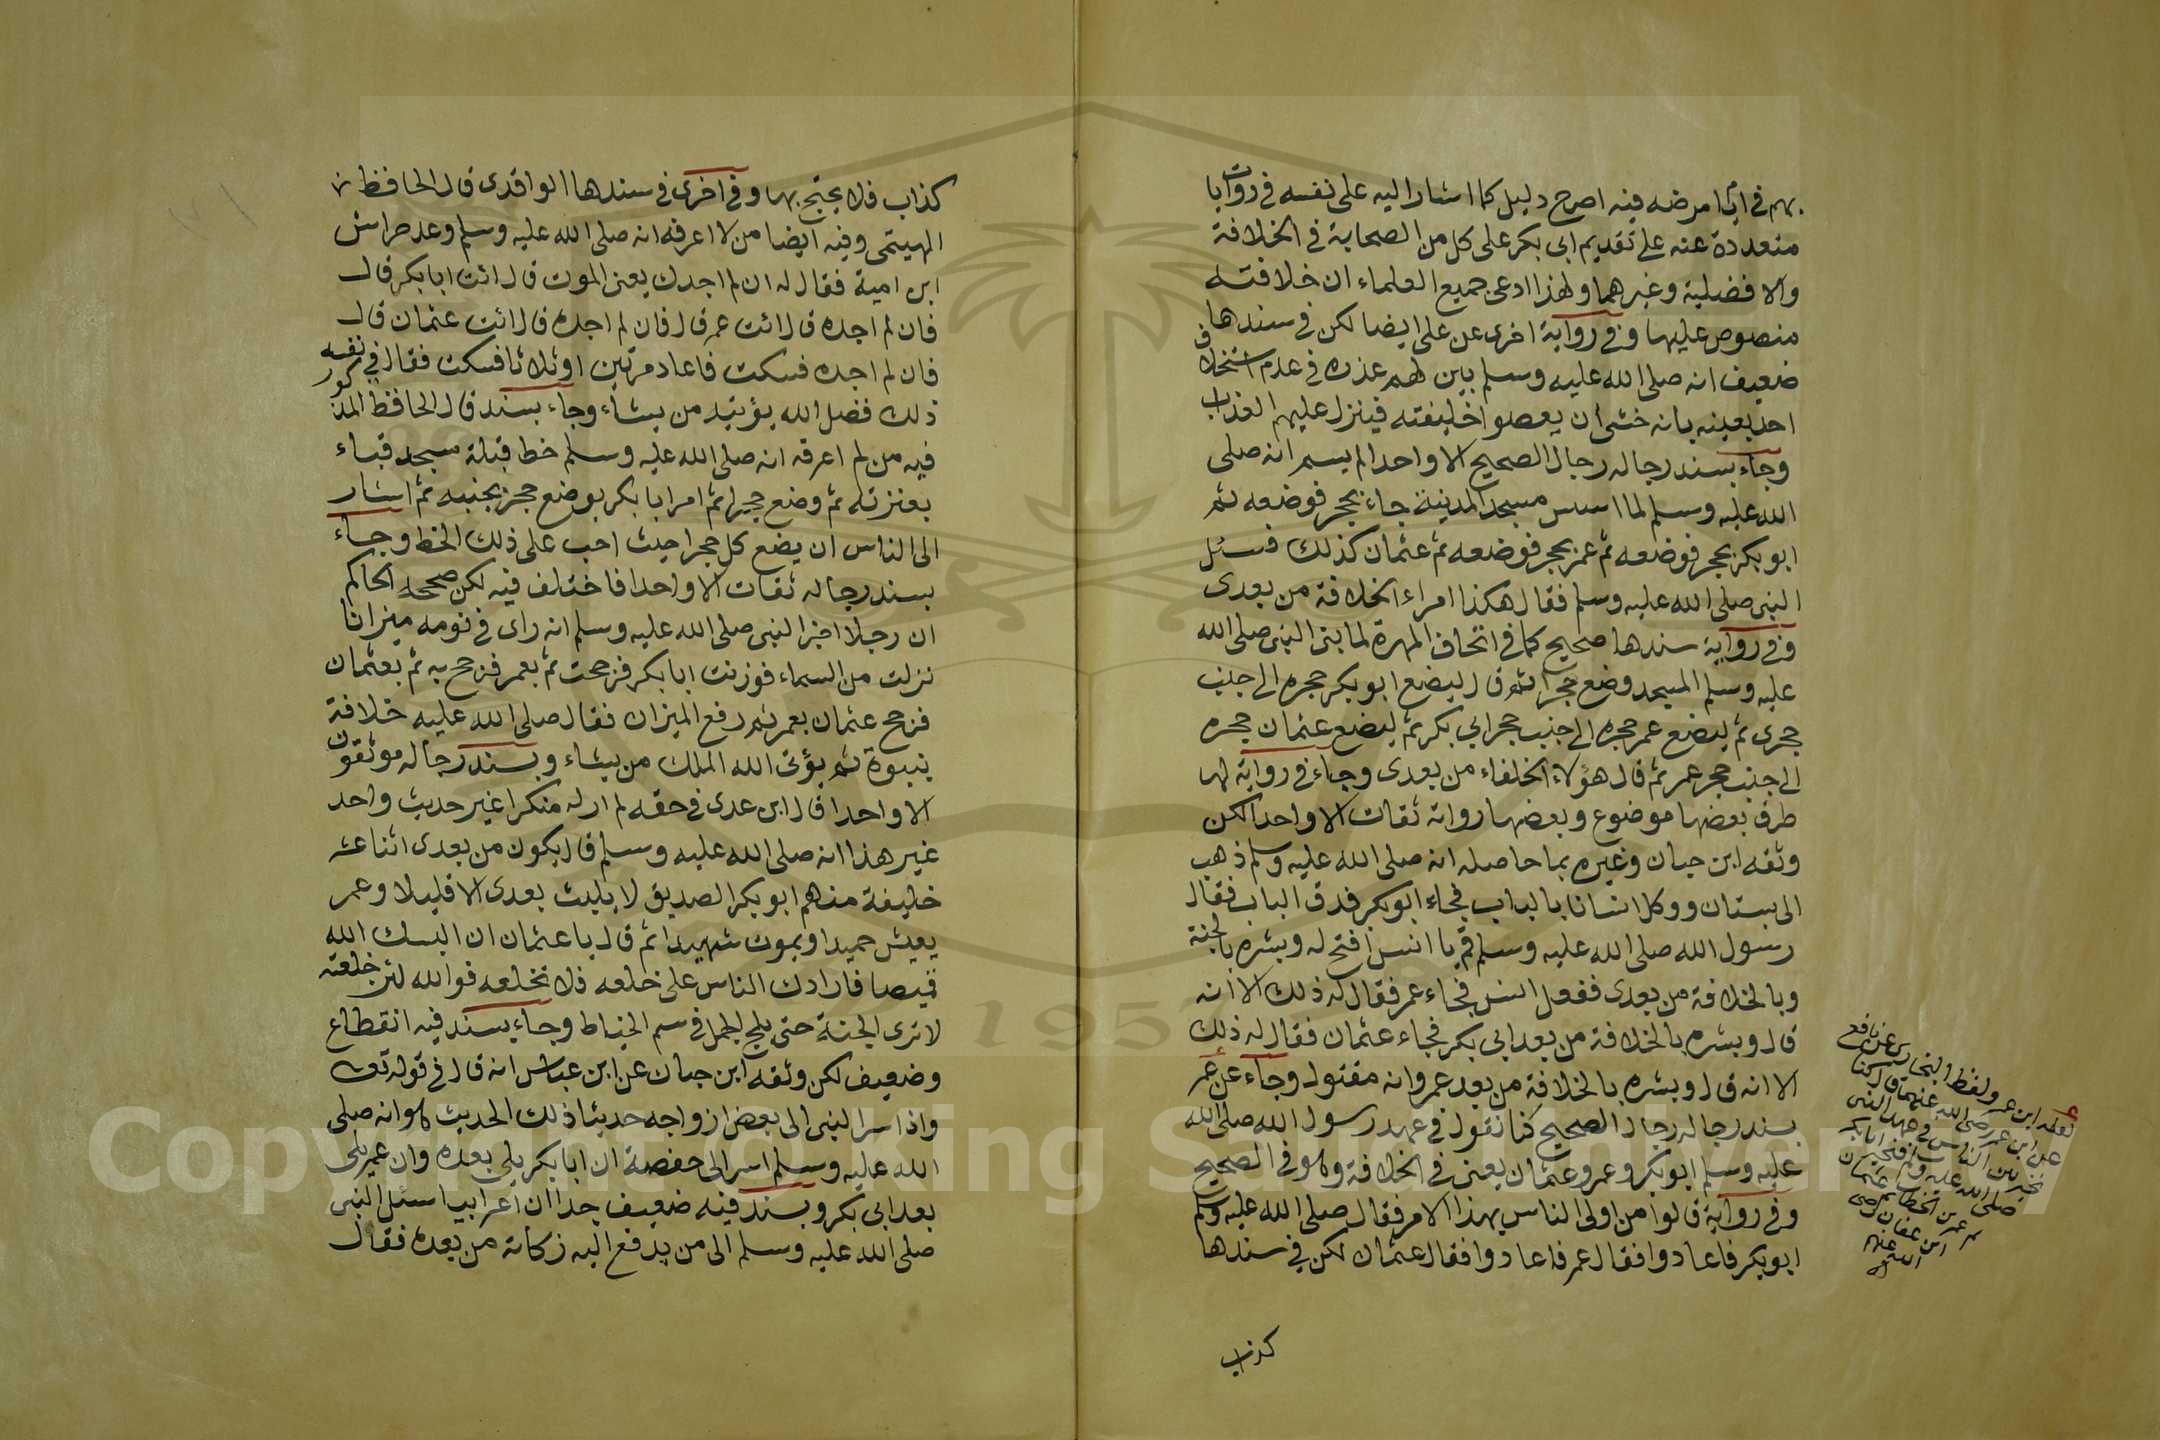 بهم في ايام مرضه فيه اصرح دليل كما اشار اليه على نفسه في روايات
متعددة عنه على تقديم ابى بكر على كل من الصحابة في الخلافة
والافضلية وغيرهما ولهذا ادعى جميع العلماء ان خلافته
منصوص عليها وفي رواية اخرى عن على ايضا لكن في سندها
ضعيف انه صلى الله عليه وسلم بين لهم عذره في عدم استخلاف
احد بعينه بانه خشى ان يعصوا خليفته فينزل عليهم العذاب
وجاء بسند رجاله رجال الصحيح الا واحدا لم يسم انه صلى
الله عليه وسلم لما اسس مسجد المدينة جاء بحجر فوضعه ثم
ابو بكر بحجر فوضعه ثم عمر بحجر فوضعه ثم عثمان كذلك فسئل
النبى صلى الله عليه وسلم فقال هكذا امراء الخلافة من بعدى
وفي رواية سندها صحيح كما في اتحاف المهرة لما بنى النبى صلى الله
عليه وسلم المسجد وضع حجرا ثم قال ليضع ابو بكر حجره الى جنب
حجرى ثم ليضع عمر حجره الى جنب حجر ابي بكر ثم ليضع عثمان حجره
الى جنب حجر عمر ثم قال هؤلاء الخلفاء من بعدى وجاء في رواية لها
طرق بعضها موضوع وبعضها رواته ثقات الا واحدا لكن
وثقه ابن حبان وغيره بما حاصله انه صلى الله عليه وسلم ذهب
الى بستان ووكل انسانا بالباب فجاء ابو بكر فدق الباب فقال
رسول الله صلى الله عليه وسلم قم يا انس افتح له وبشره بالجنة
وبالخلافة من بعدى ففعل انس فجاء عمر فقال له ذلك الا انه
قال وبشره بالخلافة من بعد ابي بكر فجاء عثمان فقال له ذلك
الا انه قال وبشره بالخلافة من بعد عمر وانه مقتول وجاء عن عمر
بسند رجاله رجال الصحيح كنا نقول في عهد رسول الله صلى الله
عليه وسلم ابو بكر وعمر وعثمان يعنى في الخلافة وهو في الصحيح
وفي رواية قالوا من اولى الناس بهذا الامر فقال صلى الله عليه وسلم
ابو بكر فاعادوا فقال عمر فاعادوا فقال عثمان لكن في سندها
كذاب
لعله ابن عمر ولفظ البخارى عن نافع
عن ابن عمر رضى الله عنهما قال كنا
نخير بين الناس في عهد النبى
صلى الله عليه وسلم فنخير ابا بكر
ثم عمر بن الخطاب ثم عثمان
ابن عفان رضى
الله عنهم
كذاب فلا يحتج بها وفي اخرى في سندها الواقدى قال الحافظ
الهيتمى وفيه ايضا من لا اعرفه انه صلى الله عليه وسلم وعد حراش
ابن امية فقال له ان لم اجدك يعنى الموت قال ائت ابا بكر قال
فان لم اجده قال ائت عمر قال فان لم اجده قال ائت عثمان قال
فان لم اجده فسكت فاعاد مرتين او ثلاثا فسكت فقال في نفسه
ذلك فضل الله يؤتيه من يشاء وجاء بسند قال الحافظ المذكور
فيه من لم اعرفه انه صلى الله عليه وسلم خط قبلة مسجد قباء
بعنزته ثم وضع حجرا ثم امر ابا بكر بوضع حجر بجنبه ثم اشار
الى الناس ان يضع كل حجرا حيث احب على ذلك الخط وجاء
بسند رجاله ثقات الا واحدا فاختلف فيه لكن صححه الحاكم
ان رجلا اخبر النبى صلى الله عليه وسلم انه راى في نومه ميزانا
نزلت من السماء فوزنت ابا بكر فرجحت ثم بعمر فرجح به ثم بعثمان
فرجح عثمان بعمر ثم رفع الميزان فقال صلى الله عليه خلافة
نبوة ثم يؤتى الله الملك من يشاء وبسند رجاله موثقون
الا واحدا قال ابن عدى في حقه لم ار له منكرا غير حديث واحد
غير هذا انه صلى الله عليه وسلم قال يكون من بعدى اثنا عشر
خليفة منهم ابو بكر الصديق لا يلبث بعدى الا قليلا وعمر
يعيش حميدا ويموت شهيدا ثم قال يا عثمان ان البسك الله
قميصا فارادك الناس على خلعه فلا تخلعه فوالله لئن خلعته
لا ترى الجنة حتى يلج الجمل في سم الخياط وجاء بسند فيه انقطاع
وضعيف لكن وثقه ابن حبان عن ابن عباس انه قال في قوله تعالى
واذ اسر النبى الى بعض ازواجه حديثا ذلك الحديث هو انه صلى
الله عليه وسلم اسر الى حفصة ان ابا بكر يلى بعده وان عمر يلى
بعد ابى بكر وبسند فيه ضعيف جدا ان اعرابيا سئل النبى
صلى الله عليه وسلم الى من يدفع اليه زكاته من بعده فقال
1957
Copyright © King Saud University